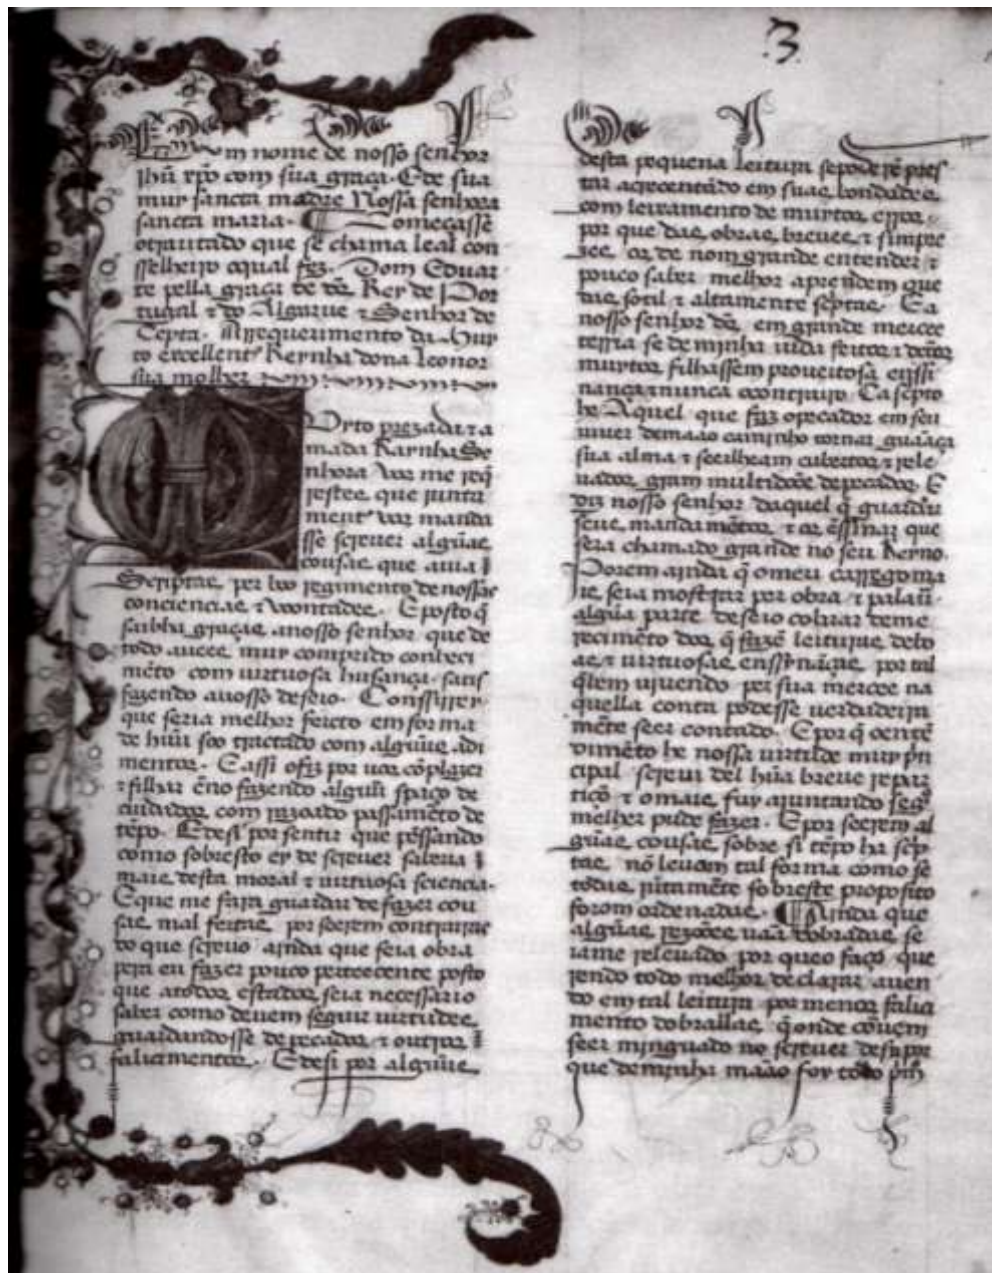 3
Em nome de nosso senhor
Jhũ xp̃o com sua graça. E de sua
muy sancta madre Nossa senhora
sancta maria. Começasse
otrautado que se chama leal con
sselheyro oqual fez. Dom Eduar
te pella graça de dẽ Rey de Por
tugal e do Algarve e Senhor de
Cepta. Arrequerimento da muy
to excellente Reynha dona leonor
sua molher
Muyto prezada e a
mada Raynha Se
nhora Vos me req̃
restes que junta
mente vos manda
sse screver algũas
cousas que avia
Scriptas per boo regimento de nossas
conciencias e voontades. E posto q̃
saibha graças anosso senhor que de
todo avees muy comprido conheci
mẽto com virtuosa husança satis
fazendo avosso desejo. Conssiirey
que seria melhor feicto em forma
de hũu soo tractado com algũus adi
mentos. E assi ofiz por vos cõplazer
e filhar eno fazendo algũu spaço de
cuidados com razoado passamẽto de
tẽpo. E desi por sentir que pẽssando
como sobresto ey de screver saberia
mais desta moral e virtuosa sciencia.
E que me fara guardar de fazer cou
sas mal feitas por seerem contrairas
do que screvo ainda que seja obra
pera eu fazer pouco perteecente posto
que atodos estados seja necessario
saber como devem seguir virtudes
guardandosse de pecados e outros
falicimentos. E desi por algũus
desta pequena leitura
acrecentãdo em suas bondades
com leixamento de muytos erros
por que das obras breves e simpre
zes os de nom grande entender e
pouco saber melhor aprendem que
das sotil e altamente sc̃ptas. Ca
nosso senhor dẽ em grande mercee
terria se de minha vida feitos e dictos
muytos filhassem proveitosa enssi
nança nunca ocontrairo. Ca sc̃pto
he Aquel que faz opecador em seu
viver demaao caminho tornar guaaça
sua alma e seerlheam cubertos e rele
vados gram multidõoe de pecados. E
diz nosso senhor daquel q̃ guardar
seus mandamẽtos e os ẽssinar que
sera chamado grande no seu Reyno.
Porem ainda q̃ omeu carrego ma
is seja mostrar por obra e palavr̃
algũa parte desejo cobrar deme
recimẽto dos q̃ fazẽ leituras devo
tas e virtuosas enssynãças por tal
q̃ lem vivendo per sua mercee na
quella conta podesse verdadeira
mẽte seer contado. E por q̃ oentẽ
dimẽto he nossa virtude muy pri
cipal screvi del hũa breve repar
tiçõ e omais fuy ajuntando segõ
melhor pude fazer. E por seerem al
gũas cousas sobre si tẽpo ha scp
tas nõ levam tal forma como se
todas juntamẽte sobreste proposito
forom ordenadas. Ainda que
algũas rezõoes vaã dobradas se
jame relevado por queo faço que
rendo todo melhor declarar aven
do em tal leitura por menos falici
mento dobrallas q̃ onde cõvem
seer minguado no screver desi por
que deminha maão foy todo prĩ